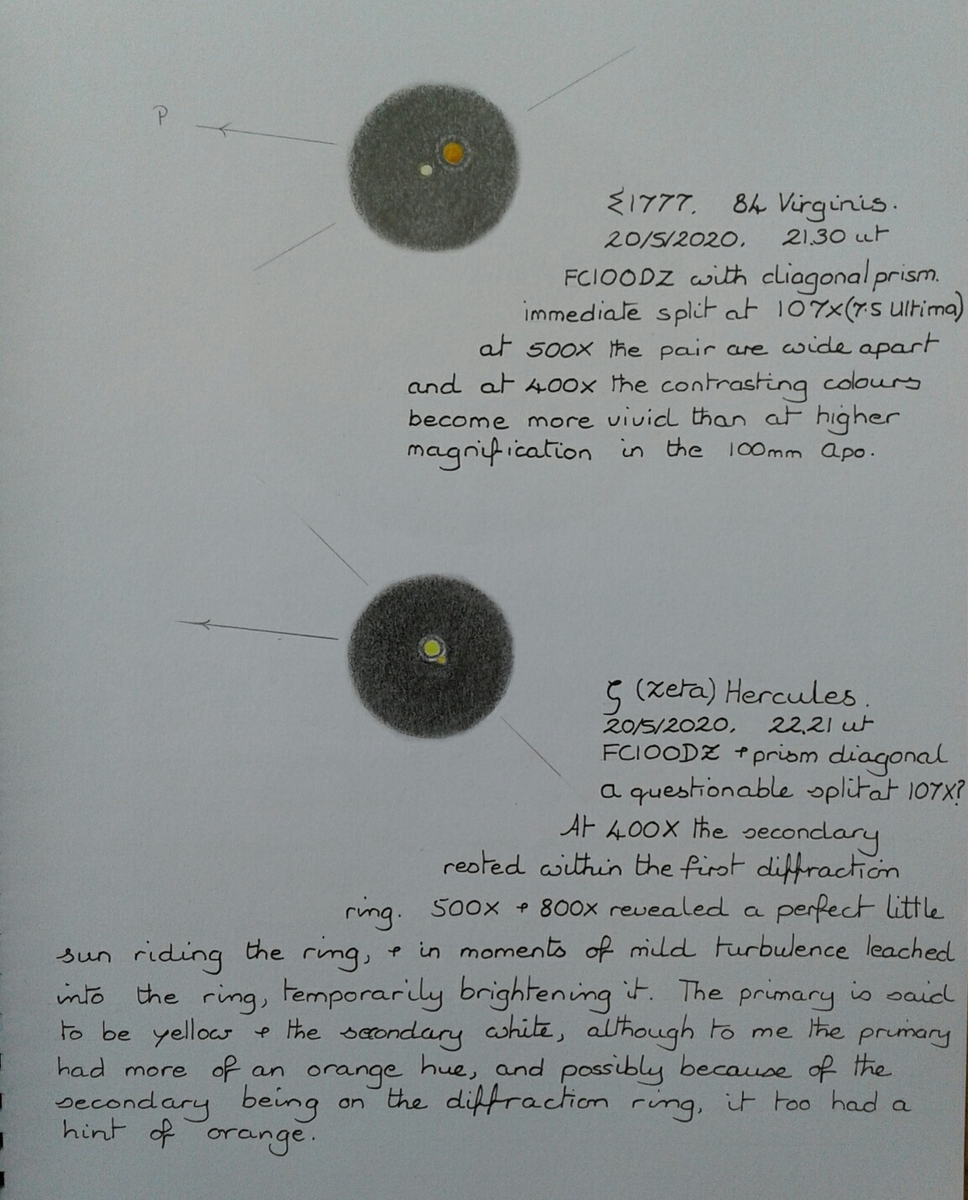 P
Σ1777. 84 Virginis.
20/5/2020. 21.30 ut
FC100DZ with diagonal prism.
immediate split at 107x (7.5 Ultima)
at 500x the pair are wide apart
and at 400x the contrasting colours
become more vivid than at higher
magnification in the 100mm apo.
ζ (zeta) Hercules.
20/5/2020. 22.21 ut
FC100DZ + prism diagonal
a questionable split at 107x?
At 400x the secondary
rested within the first diffraction
ring. 500x + 800x revealed a perfect little
sun riding the ring, + in moments of mild turbulence leached
into the ring, temporarily brightening it. The primary is said
to be yellow + the secondary white, although to me the primary
had more of an orange hue, and possibly because of the
secondary being on the diffraction ring, it too had a
hint of orange.